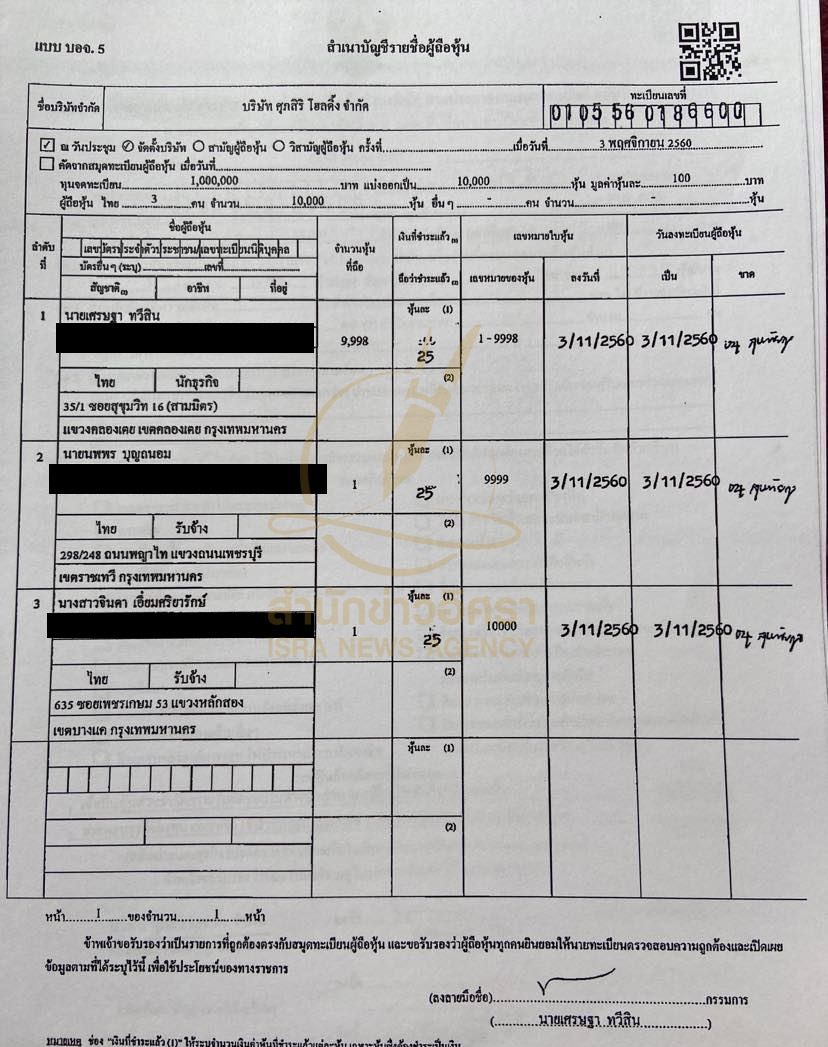 แบบ บอจ. 5
สำเนาบัญชีรายชื่อผู้ถือหุ้น
ชื่อบริษัทจำกัด
บริษัท ศุภสิริ โฮลดิ้ง จำกัด
ทะเบียนเลขที่
0105560186600
ณ วันประชุม จัดตั้งบริษัท สามัญผู้ถือหุ้น วิสามัญผู้ถือหุ้น ครั้งที่ เมื่อวันที่ 3 พฤศจิกายน 2560
คัดจากสมุดทะเบียนผู้ถือหุ้น เมื่อวันที่
ทุนจดทะเบียน 1,000,000 บาท แบ่งออกเป็น 10,000 หุ้น มูลค่าหุ้นละ 100 บาท
ผู้ถือหุ้น ไทย 3 คน จำนวน 10,000 หุ้น อื่น ๆ - คน จำนวน - หุ้น
ลำดับที่
ชื่อผู้ถือหุ้น
เลขบัตรประจำตัวประชาชน/เลขทะเบียนนิติบุคคล
บัตรอื่นๆ (ระบุ) เลขที่
สัญชาติ(3) อาชีพ ที่อยู่
จำนวนหุ้นที่ถือ
เงินที่ชำระแล้ว(1)
ถือว่าชำระแล้ว(2)
เลขหมายใบหุ้น
เลขหมายของหุ้น ลงวันที่
วันลงทะเบียนผู้ถือหุ้น
เป็น ขาด
1 นายเศรษฐา ทวีสิน
9,998
หุ้นละ (1)
25
1 - 9998
3/11/2560 3/11/2560
(2)
ไทย นักธุรกิจ
35/1 ซอยสุขุมวิท 16 (สามมิตร)
แขวงคลองเตย เขตคลองเตย กรุงเทพมหานคร
2 นายนพพร บุญถนอม
1
หุ้นละ (1)
25
9999
3/11/2560 3/11/2560
(2)
ไทย รับจ้าง
298/248 ถนนพญาไท แขวงถนนเพชรบุรี
เขตราชเทวี กรุงเทพมหานคร
3 นางสาวจินดา เอี่ยมศริยารักษ์
1
หุ้นละ (1)
25
10000
3/11/2560 3/11/2560
(2)
ไทย รับจ้าง
635 ซอยเพชรเกษม 53 แขวงหลักสอง
เขตบางแค กรุงเทพมหานคร
สำนักข่าวอิศรา
ISRA NEWS AGENCY
หุ้นละ (1)
(2)
หน้า 1 ของจำนวน 1 หน้า
ข้าพเจ้าขอรับรองว่าเป็นรายการที่ถูกต้องตรงกับสมุดทะเบียนผู้ถือหุ้น และขอรับรองว่าผู้ถือหุ้นทุกคนยินยอมให้นายทะเบียนตรวจสอบความถูกต้องและเปิดเผย
ข้อมูลตามที่ได้ระบุไว้นี้ เพื่อใช้ประโยชน์ของทางราชการ
(ลงลายมือชื่อ) กรรมการ
( นายเศรษฐา ทวีสิน )
หมายเหตุ ช่อง "เงินที่ชำระแล้ว (1)" ให้ระบุจำนวนเงินค่าหุ้นที่ชำระแล้ว